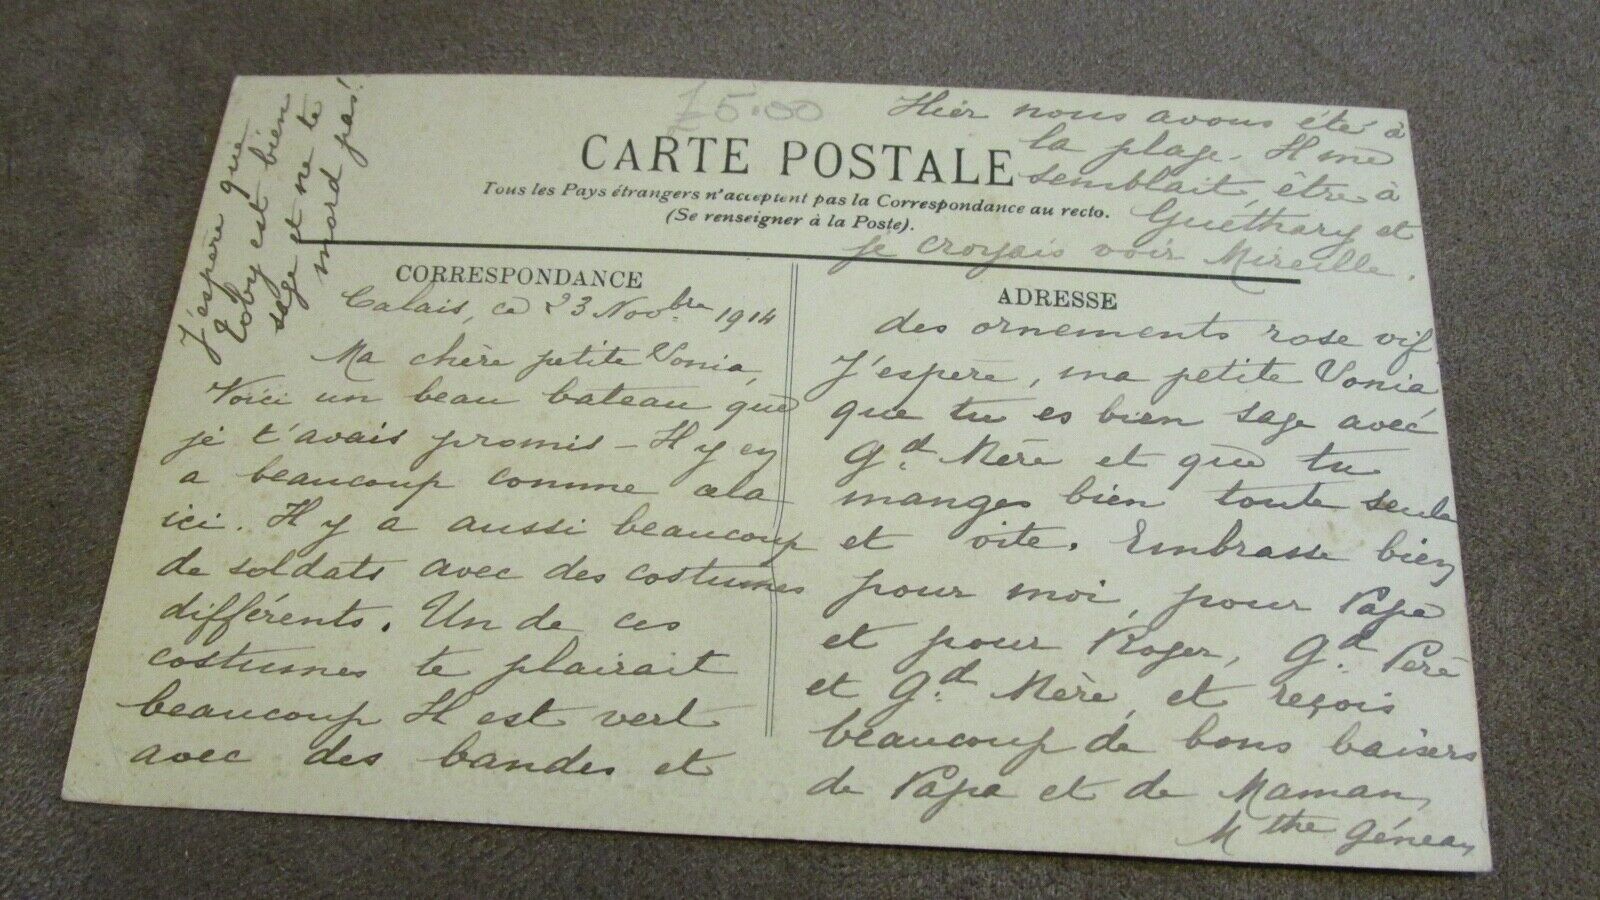 £5.00
CARTE POSTALE
Tous les Pays étrangers n'acceptent pas la Correspondance au recto.
(Se renseigner à la Poste).
CORRESPONDANCE
Calais, ce 23 Novbre 1914
Ma chère petite Vonia,
Voici un beau bateau que
je t'avais promis – Il y en
a beaucoup comme cela
ici. Il y a aussi beaucoup
de soldats avec des costumes
différents. Un de ces
costumes te plairait
beaucoup Il est vert
avec des bandes et
ADRESSE
des ornements rose vif
J'espère, ma petite Vonia
que tu es bien sage avec
Gd. Mère et que tu
manges bien toute seule
et vite. Embrasse bien
pour moi, pour Papa
et pour Roger, Gd. Père
et Gd. Mère, et reçois
beaucoup de bons baisers
de Papa et de Maman,
Mthe Géneau
Hier nous avons été à
la plage. Il me
semblait être à
Guéthary et
je croyais voir Mireille.
J'espère que
Toby est bien
sage et ne te
mord pas!